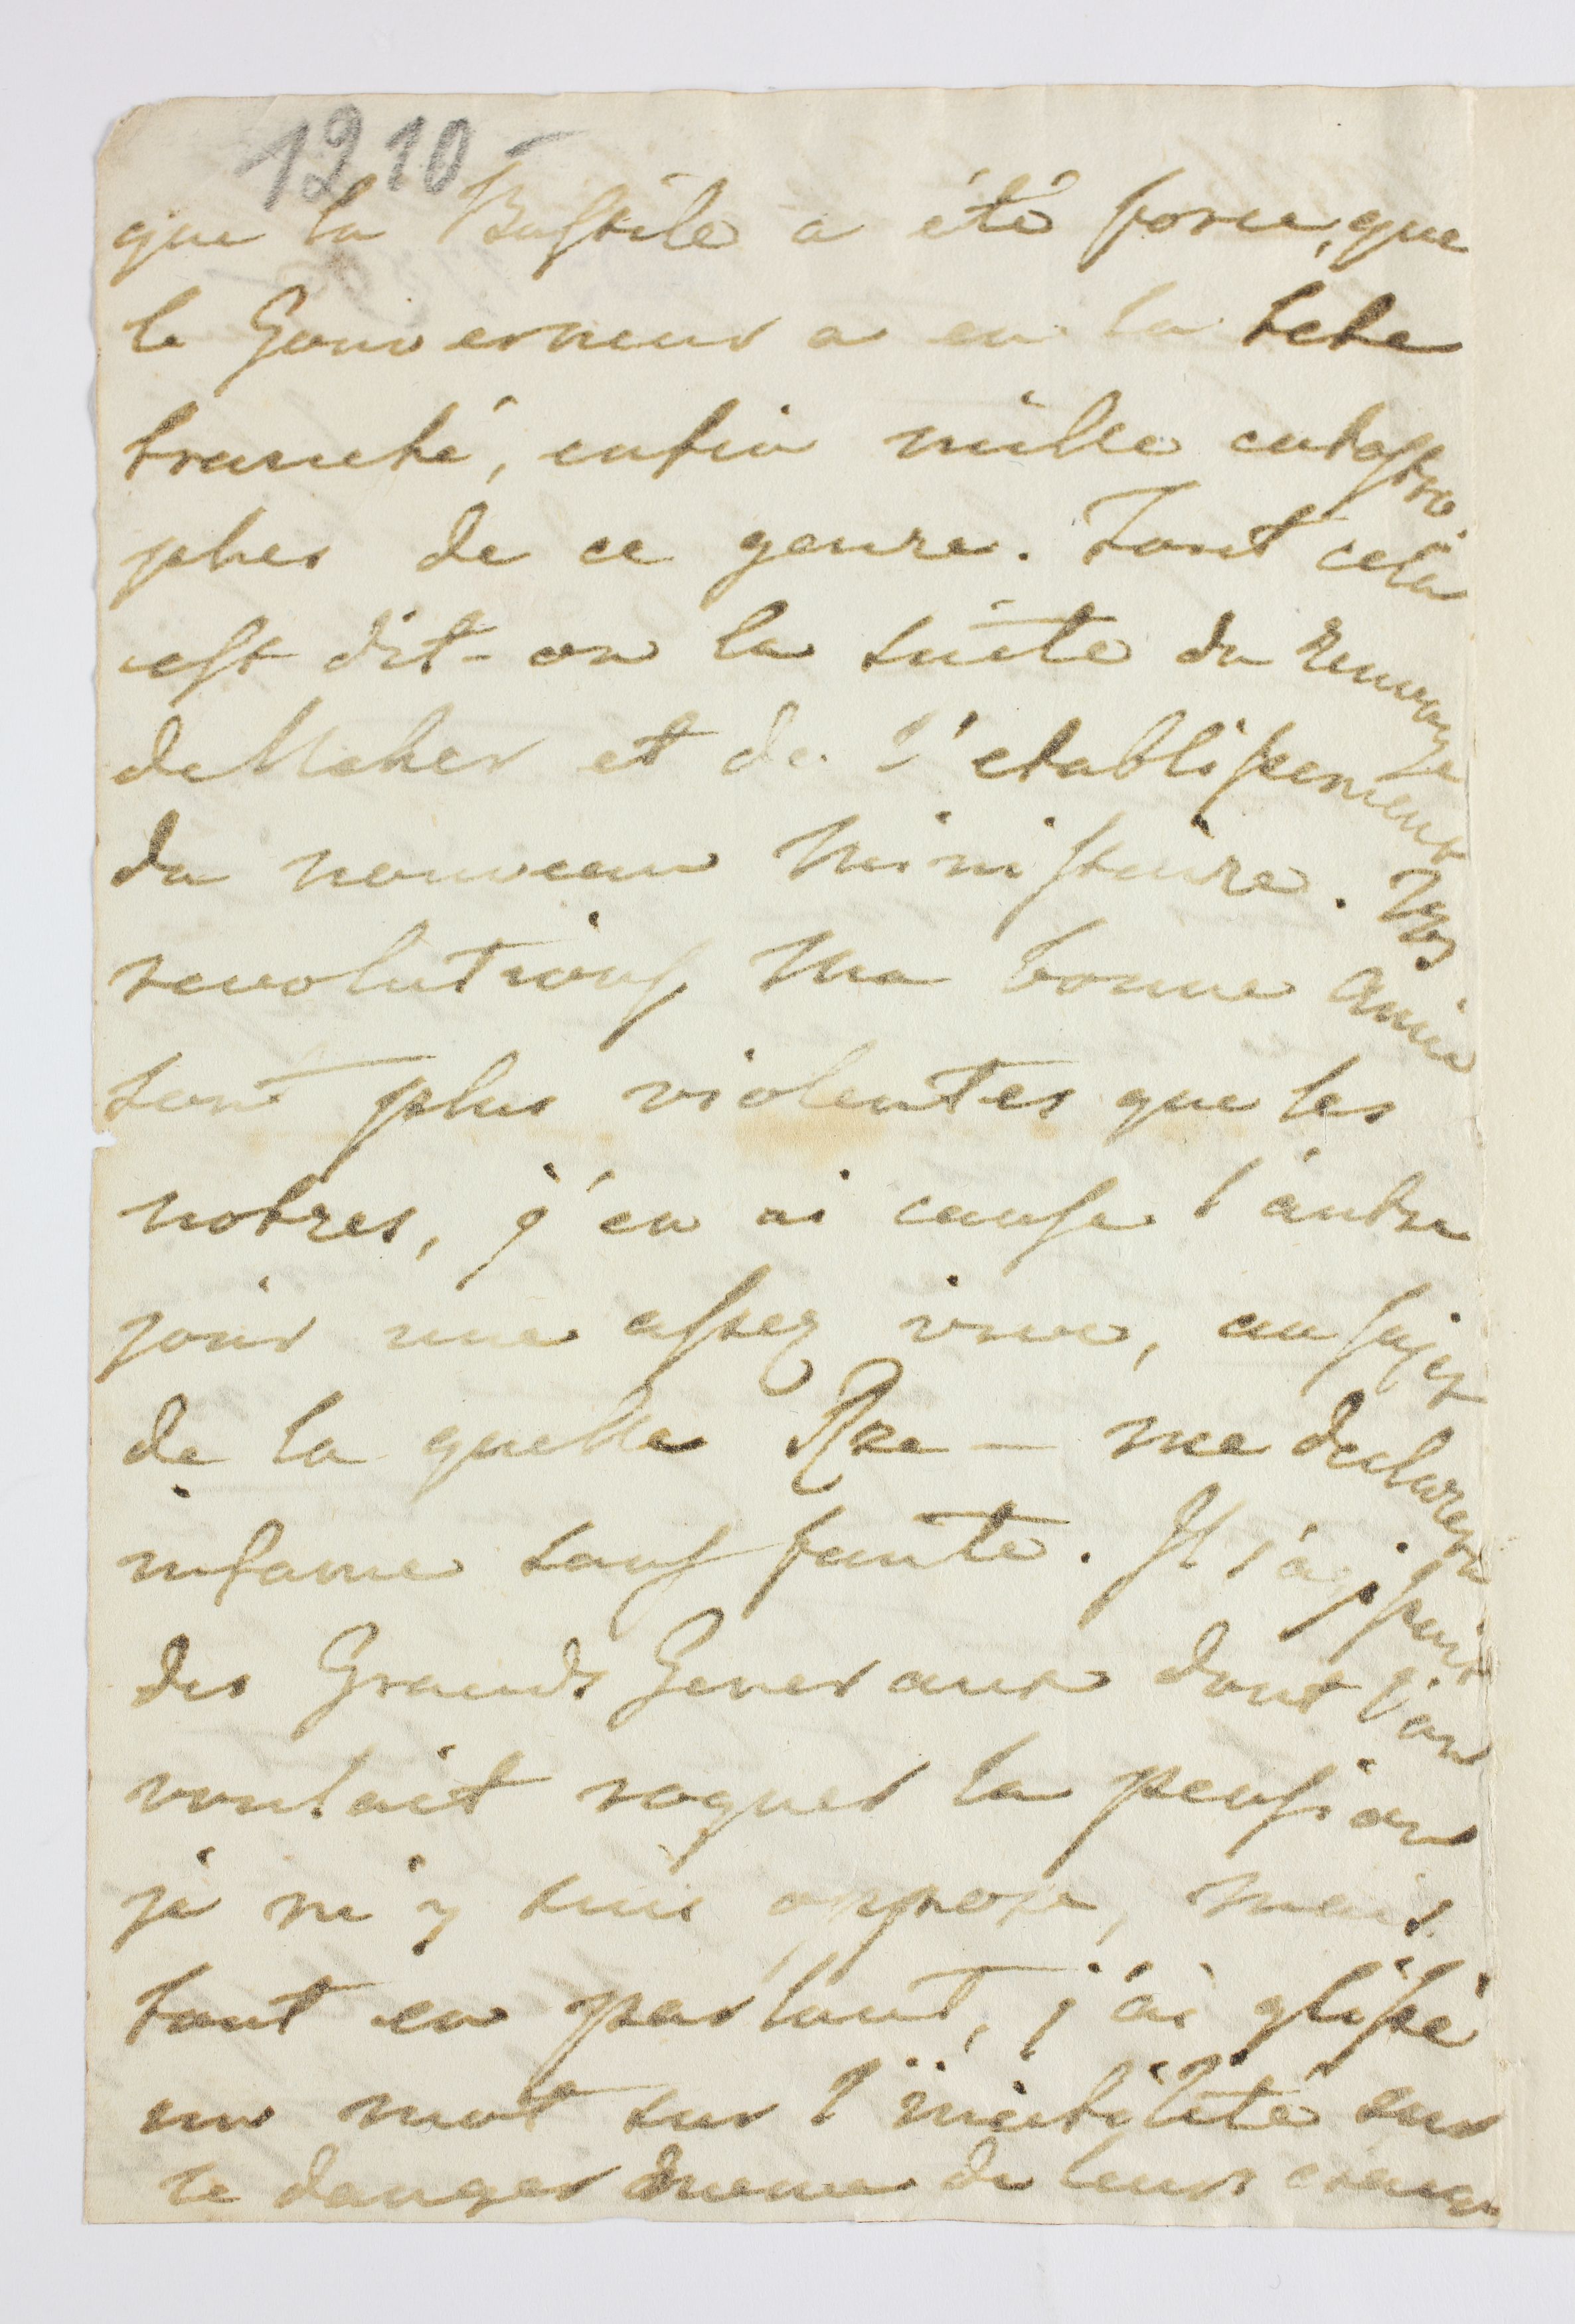 1210-
que la Bastile a été forcé, que
le Gouverneur a eu la tete
tranché, enfin mille catastro
phes de ce genre. Tout cela
est dit-on la suite du Renvoye
de Neker et de l'etablissement
du nouveau Ministaire. Vos
revolutions Ma bonne Amie
sont plus violentes que les
notres, j'en ai cause l'autre
jour une assez vive, au sujet
de la quelle Rze — me declarera
infame sans faute. Il s'agissait
des Grands Generaux dont l'on
voulait rogner la pension
je m'y suis oppose, mais
tout en parlant, j'ai glissé
un mot sur l'inutilité sur
le danger meme de leurs